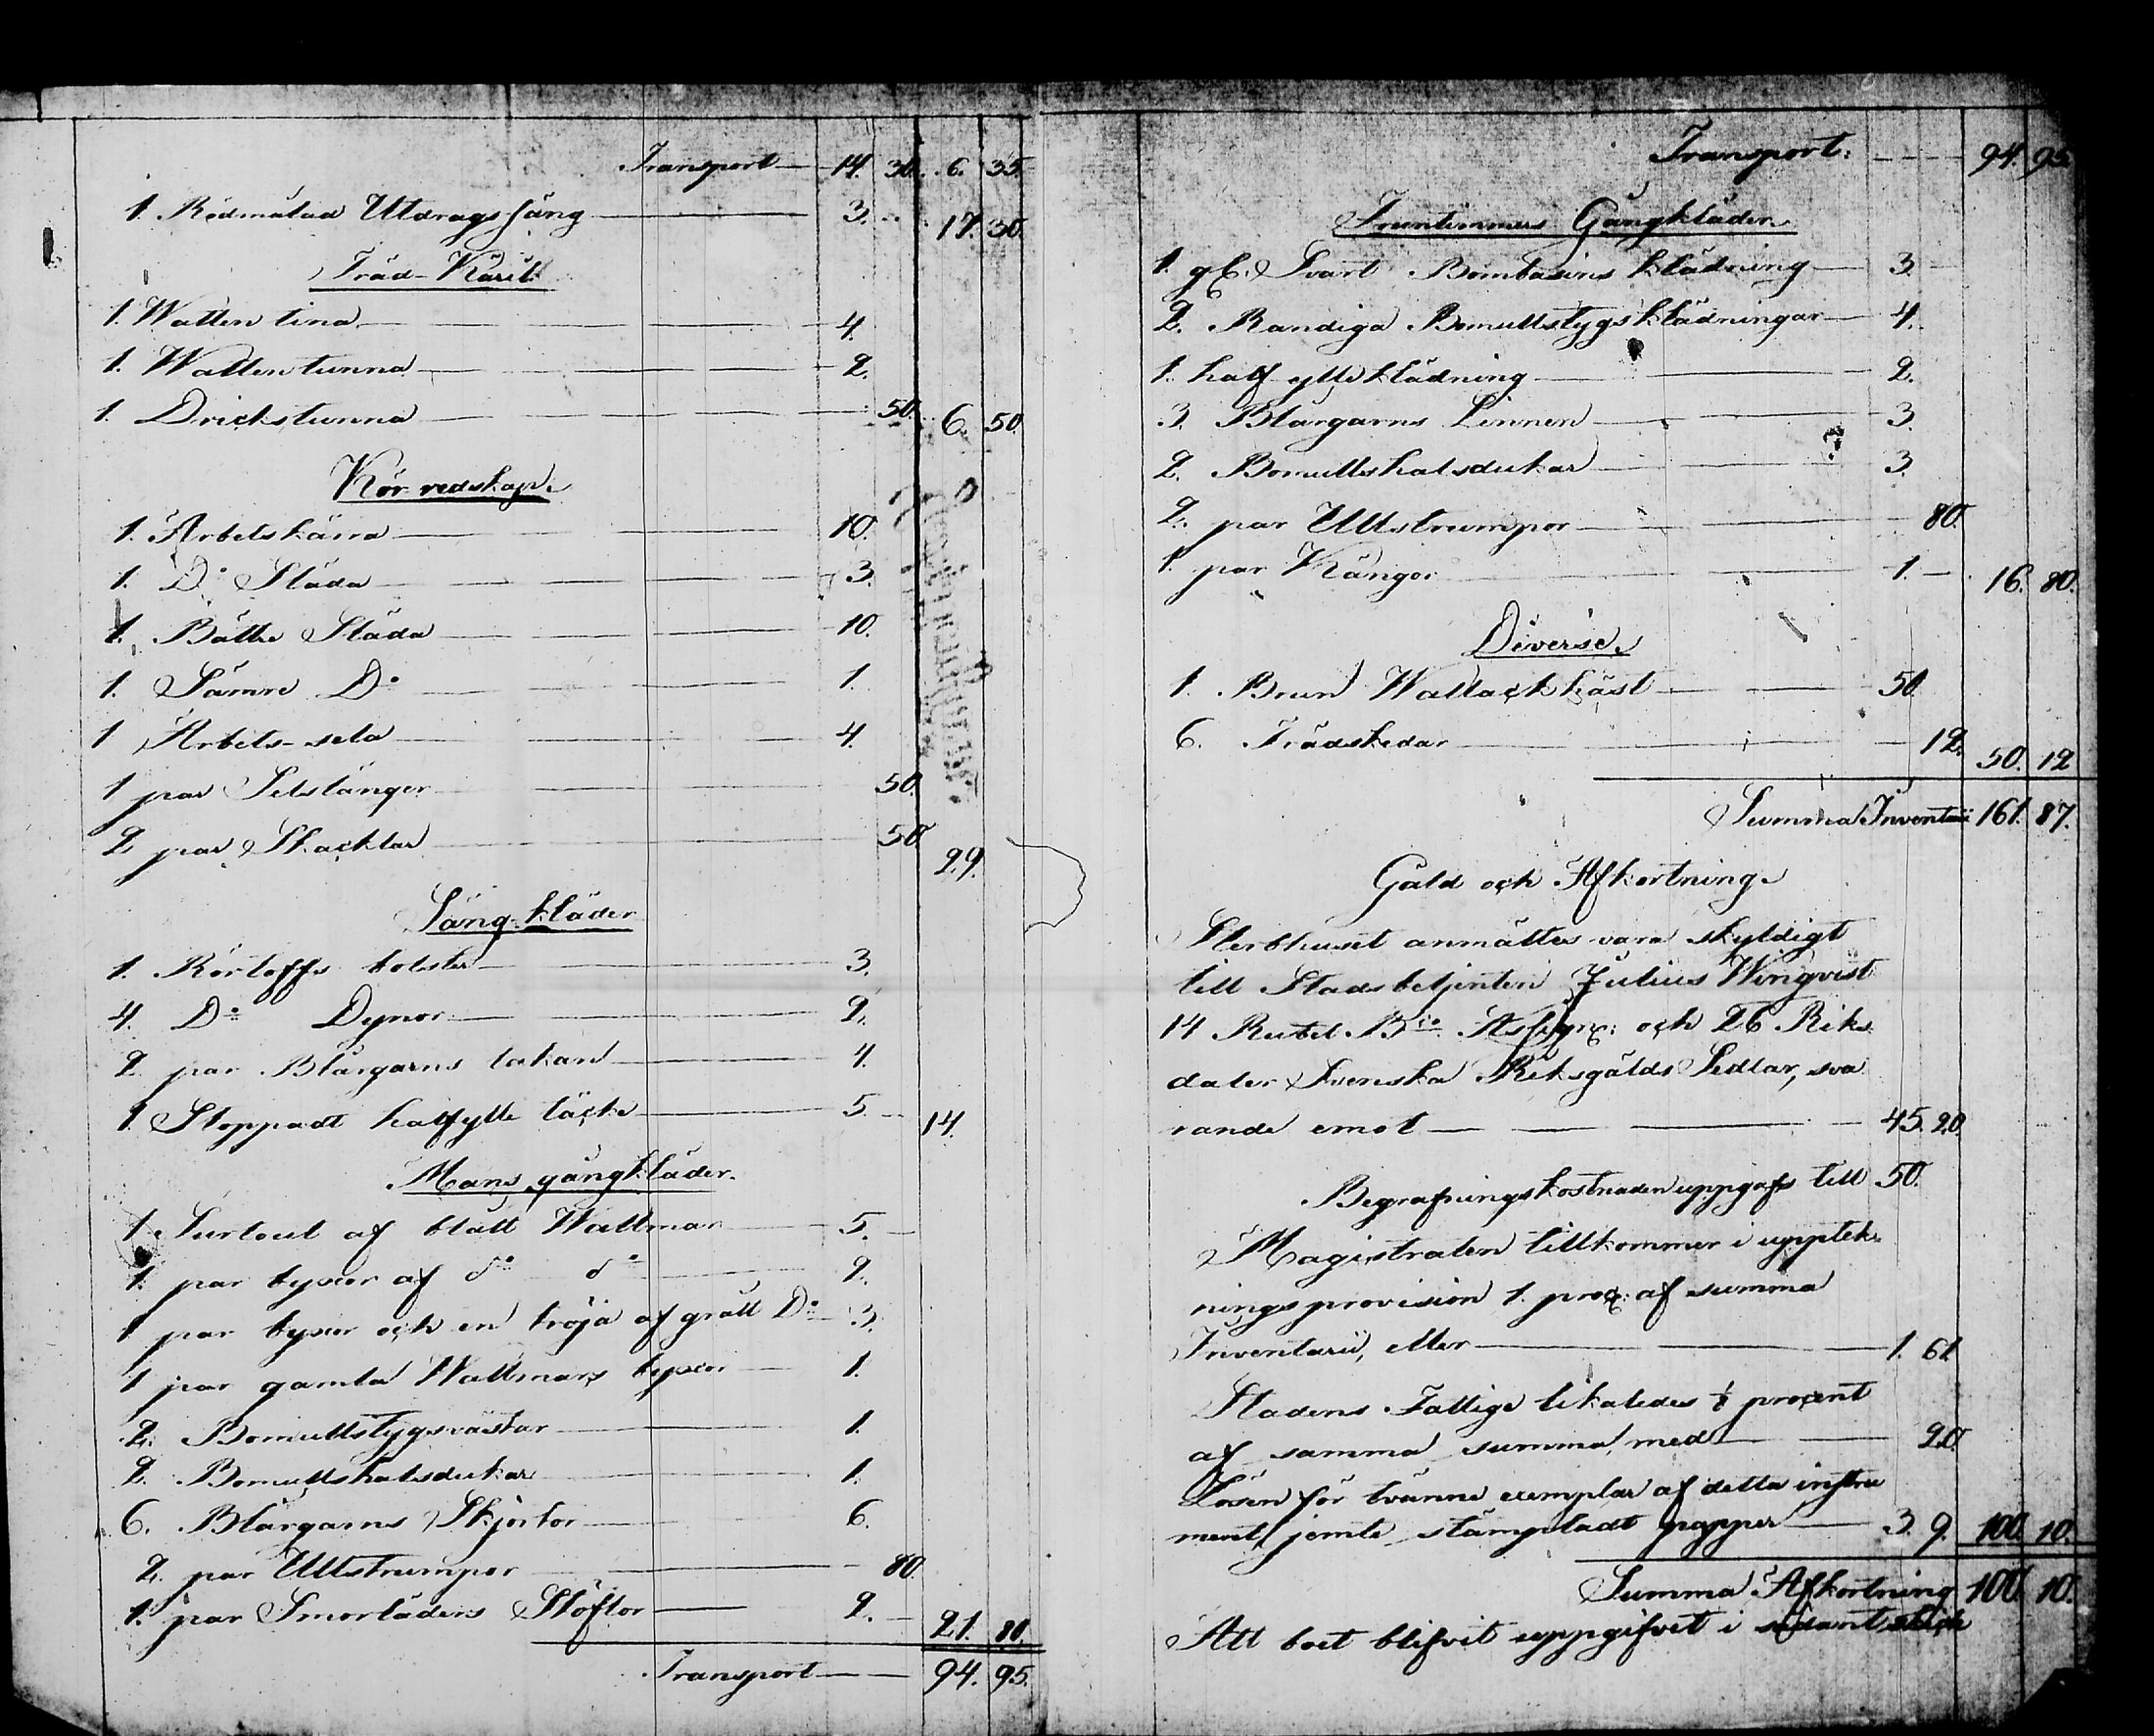 Transport 14. 30. 6. 35.
1. Rödmålad Utdragssäng 3. 17. 30.
Träd-Käril.
1. Watten tina 4.
1. Wattentunna 2.
1. Drickstunna 50. 6. 50.
Kör redskap.
1. Arbetskärra 10.
1. Do Släda 3.
1. Bättre Släda 10.
1. Sämre Do 1.
1 Arbets-sela 4.
1 par Selstänger 50.
2 par Skacklar 50 29.
Säng-kläder
1. Rörloffs bolster 3.
4. Do Dynor 2.
2 par Blårgarns lakan 4.
1. Stoppadt halfylle täcke 5. 14.
Mans gångkläder.
1. Surtout af blått Wallmar 5.
1. par byxor af do do 2.
1 par byxor och en tröja af grått Do 3.
1 par gamla Wallmars byxor 1.
2. Bomullstygsvästar 1.
2. Bomullshalsdukar 1.
6. Blårgarns Skjortor 6.
2. par Ullstrumpor 80.
1. par Smorläders Stöflor 2. 21. 80.
Transport 94. 95.
Transport: 94. 95.
Fruntimmers Gångkläder.
1. gl. Svart Bombasins klädning 3.
2. Randiga Bomullstygs klädningar 4.
1. half ylle klädning 2.
3. Blårgarns Linnen 3.
2. Bomullshalsdukar 3.
2. par Ullstrumpor 80.
1. par Kängor 1. 16. 80.
Diverse.
1. Brun Wallack häst 50
6. Trädskedar 12. 50. 12
Summa Inventarii 161. 87.
Gäld och Afkortning.
Sterbhuset anmältes vara skyldigt
till Stadsbetjenten Julius Winqvist
14 Rubel Bco Assigns: och 26 Riks
daler Svenska Riksgälds Sedlar, sva
rande emot 45. 20.
Begrafningskostnaden uppgafs till 50.
Magistraten tillkommer i upptek
ningsprovision 1. proc: af summa
Inventarii, eller 1. 61
Stadens Fattige likaledes 1/8 procent
af samma summa, med 20
Lösen för tvänne exemplar af detta instru
ment, jemte stämpladt papper 3. 9. 100. 10.
Summa Afkortning 100. 10.
Att boet blifvit uppgifvet i sådant skick